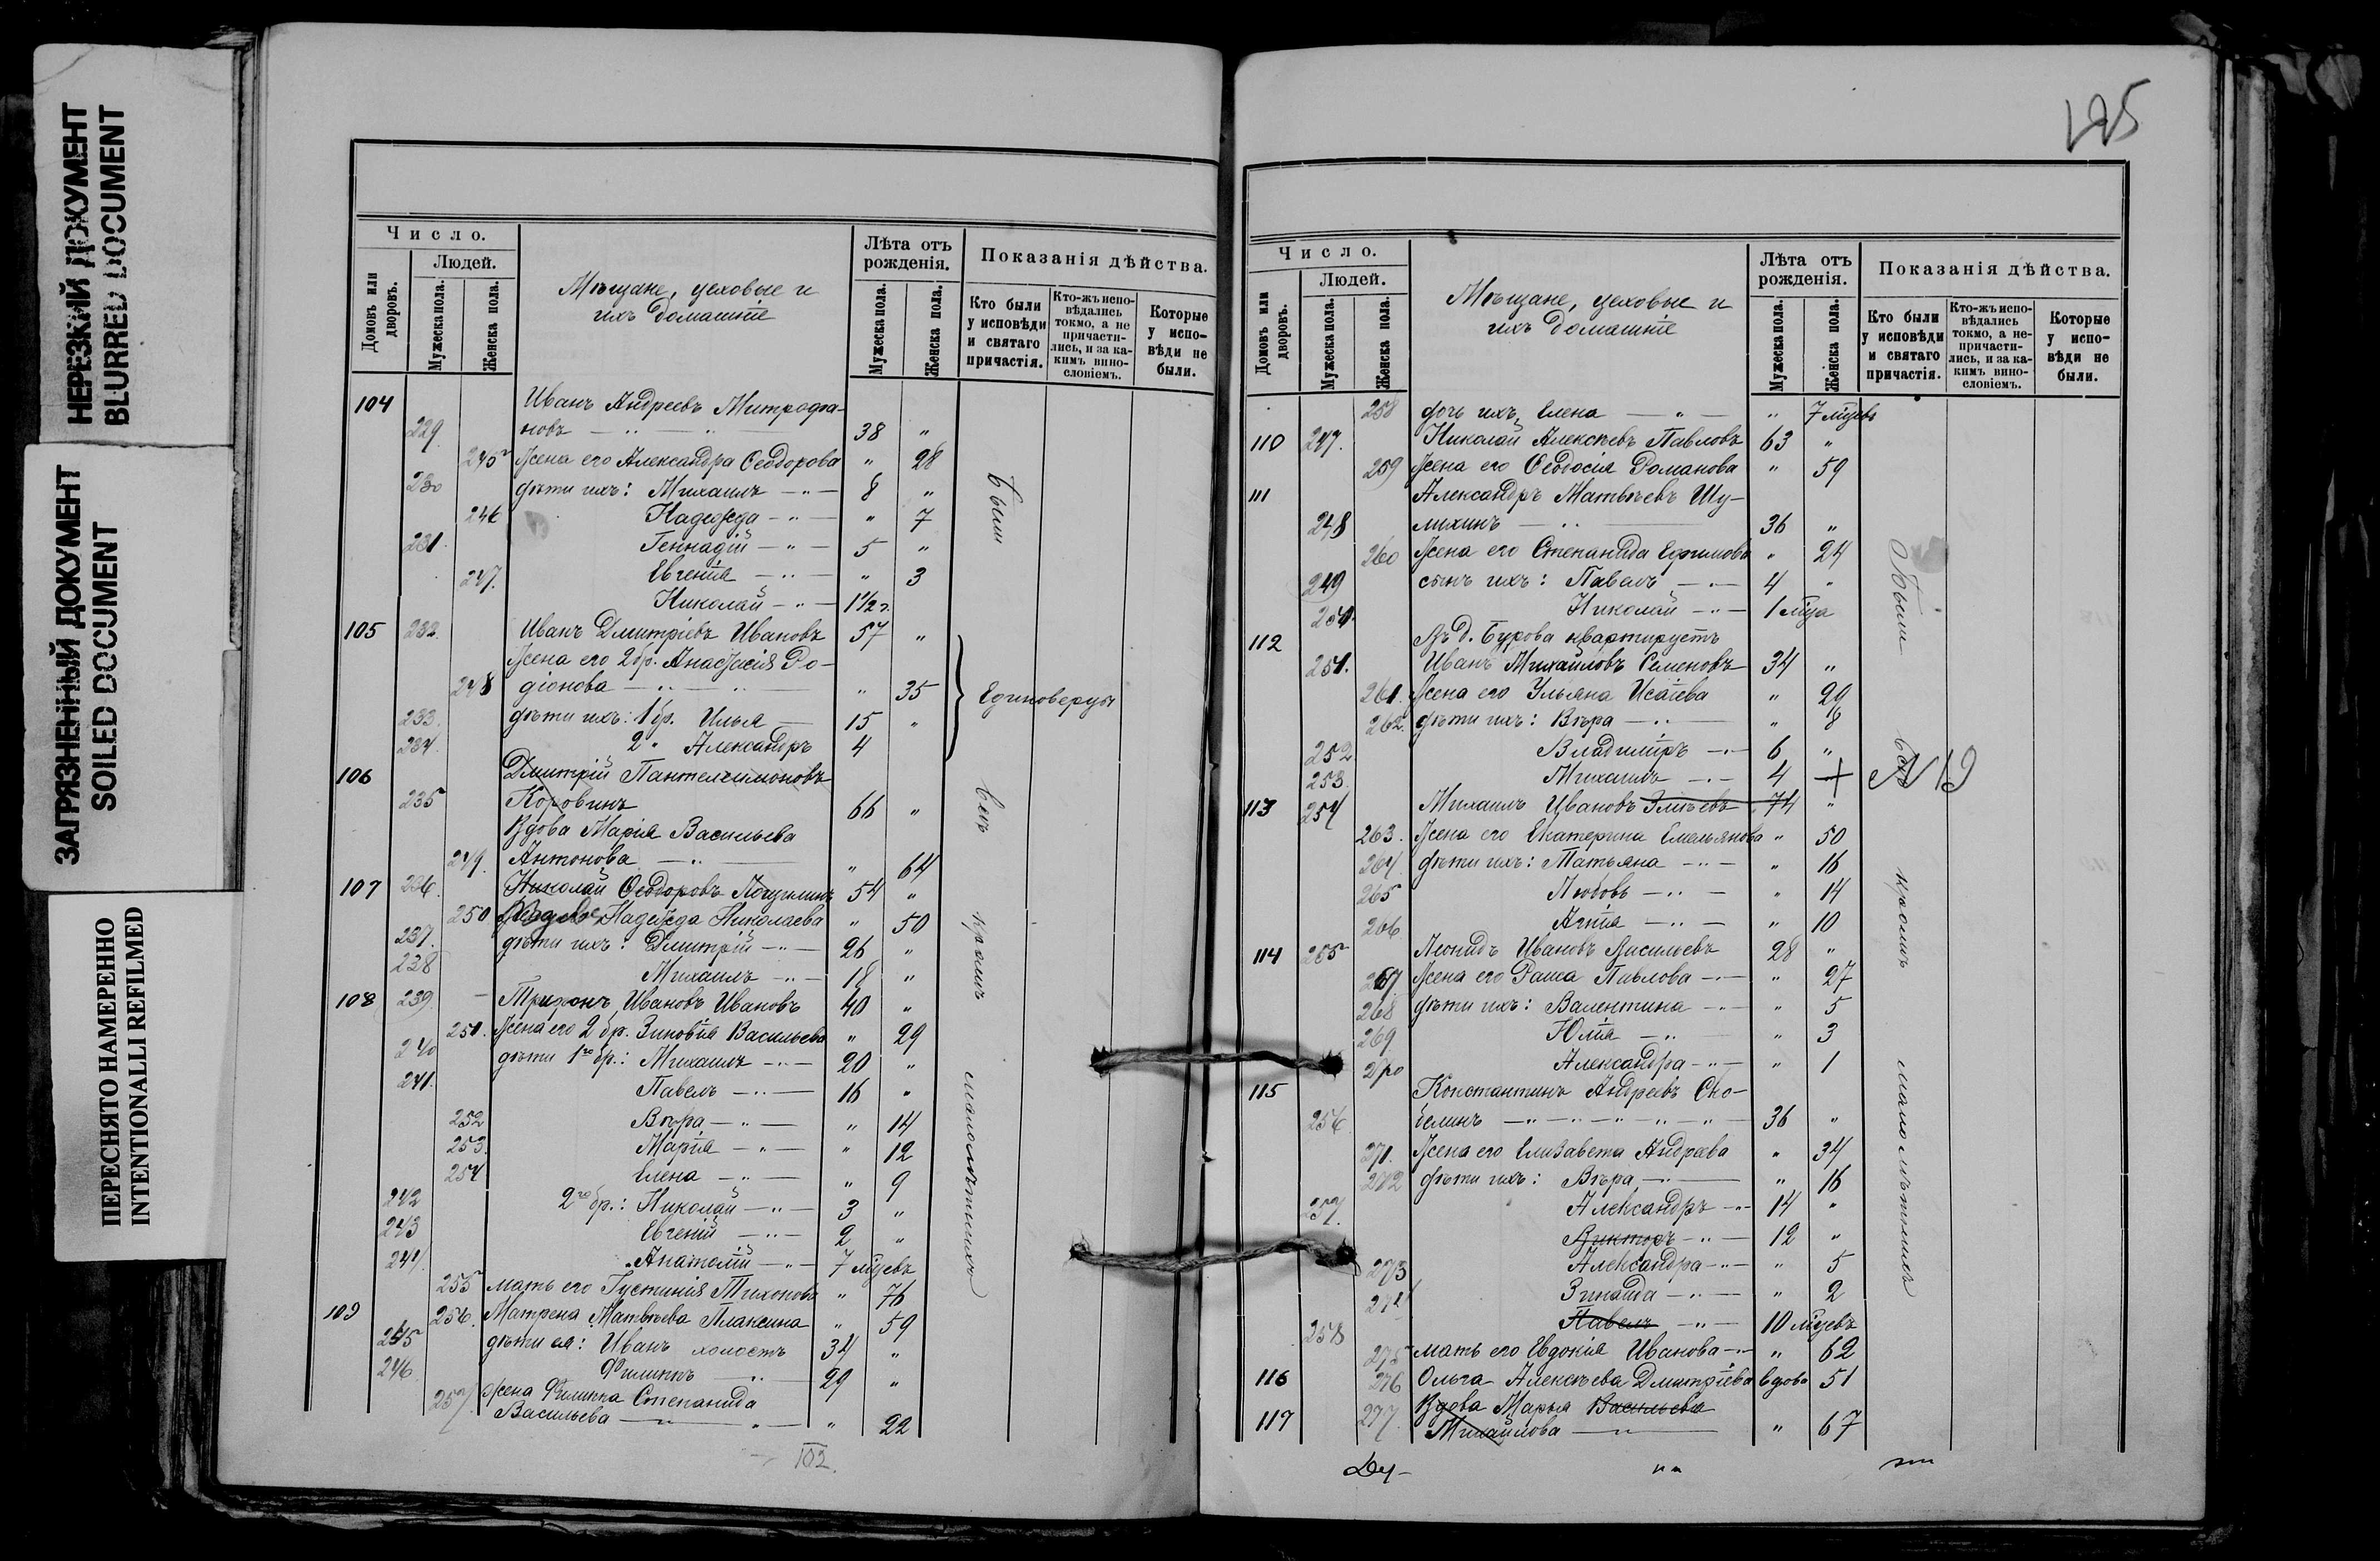 НЕРЕЗКИЙ ДОКУМЕНТ
BLURRED DOCUMENT
ЗАГРЯЗНЕННЫЙ ДОКУМЕНТ
SOILED DOCUMENT
ПЕРЕСНЯТО НАМЕРЕННО
INTENTIONALLI REFILMED
Число.
Домовъ или дворовъ.
Людей.
Мужеска пола.
Женска пола.
Мѣщане, цеховые и
ихъ домашніе
Лѣта отъ рожденія.
Мужеска пола.
Женска пола.
Показанія дѣйства.
Кто были у исповѣди и святаго причастія.
Кто-жъ исповѣдались токмо, а не причастились, и за какимъ винословіемъ.
Которые у исповѣди не были.
104 Иванъ Андреевъ Митрофа-
229 новъ 38 "
245 Жена его Александра Ѳеодорова " 28
230 дѣти ихъ: Михаилъ 8 "
246 Надежда " 7
231 Геннадій 5 "
247. Евгенія " 3
Николай 1 1/2 г.
105 232. Иванъ Дмитріевъ Ивановъ 57 "
Жена его 2 бр. Анастасія Ро-
248 діонова " 35
233. дѣти ихъ: 1 бр. Илья 15 "
234. 2 " Александръ 4
Единоверцы
106 Дмитрій Пантелеимоновъ
235 Коровинъ 66 "
Вдова Марія Васильева
249. Антонова " 64
107 236. Николай Ѳеодоровъ 54 "
250 Надежда Николаева " 50
237. дѣти ихъ: Дмитрій 26 "
238 Михаилъ 18 "
108 239. Трифонъ Ивановъ Ивановъ 40 "
251. Жена его 2 бр. Зиновія Васильева " 29
240 дѣти 1го бр.: Михаилъ 20 "
241. Павелъ 16 "
252 Вѣра " 14
253. Марія " 12
254 Елена " 9
242 2го бр.: Николай 3 "
243 Евгеній 2 "
244. Анатолій 7 мѣсцевъ
255 мать его Густинія Тихонова " 76
109 256. Матрена Матвѣева Плаксина " 59
245 дѣти ея: Иванъ холостъ 34 "
246 Филиппъ 29 "
257. жена Филиппа Степанида
Васильева " 22
были
всѣ
кромѣ
малолѣтнихъ
102.
125
Число.
Домовъ или дворовъ.
Людей.
Мужеска пола.
Женска пола.
Мѣщане, цеховые и
ихъ домашніе
Лѣта отъ рожденія.
Мужеска пола.
Женска пола.
Показанія дѣйства.
Кто были у исповѣди и святаго причастія.
Кто-жъ исповѣдались токмо, а не-причастились, и за какимъ винословіемъ.
Которые у исповѣди не были.
258 дочь ихъ Елена " 7 мѣсцевъ
110 247. Николай Алексѣевъ Павловъ 63 "
259 Жена его Ѳеодосія Романова " 59
111 Александръ Матвѣевъ Шу-
248 лихинъ 36 "
260 Жена его Степанида Ефимова " 24
249 сынъ ихъ: Павелъ 4 "
250. Николай 1 мѣсца
112 Въ д. Бурова квартируетъ
251. Иванъ Михайловъ Семеновъ 34 "
261. Жена его Ульяна Исаіева " 29
262. дѣти ихъ: Вѣра " 8
252 Владиміръ 6 "
253. Михаилъ 4
113 254 Михаилъ Ивановъ 74 "
263. Жена его Екатерина Емельянова " 50
264. дѣти ихъ: Татьяна " 16
265 Любовь " 14
266 Агнія " 10
114 255 Леонидъ Ивановъ Васильевъ 28 "
267. Жена его Раиса Павлова " 27
268 дѣти ихъ: Валентина " 5
269 Юлія " 3
270 Александра " 1
115 Константинъ Андреевъ Ско-
256. белинъ 36 "
271. Жена его Елизавета Андреева " 34
272 дѣти ихъ: Вѣра " 16
257. Александръ 14 "
Викторъ 12 "
273 Александра " 5
274 Зинаида " 2
258 Павелъ 10 мѣсцевъ
275 мать его Евдокія Иванова " 62
116 276 Ольга Алексѣева Дмитріева вдова 51
117 277. Вдова Марья Васильева
Михайлова " 67
Были
всѣ
кромѣ
малолѣтнихъ
№ 19